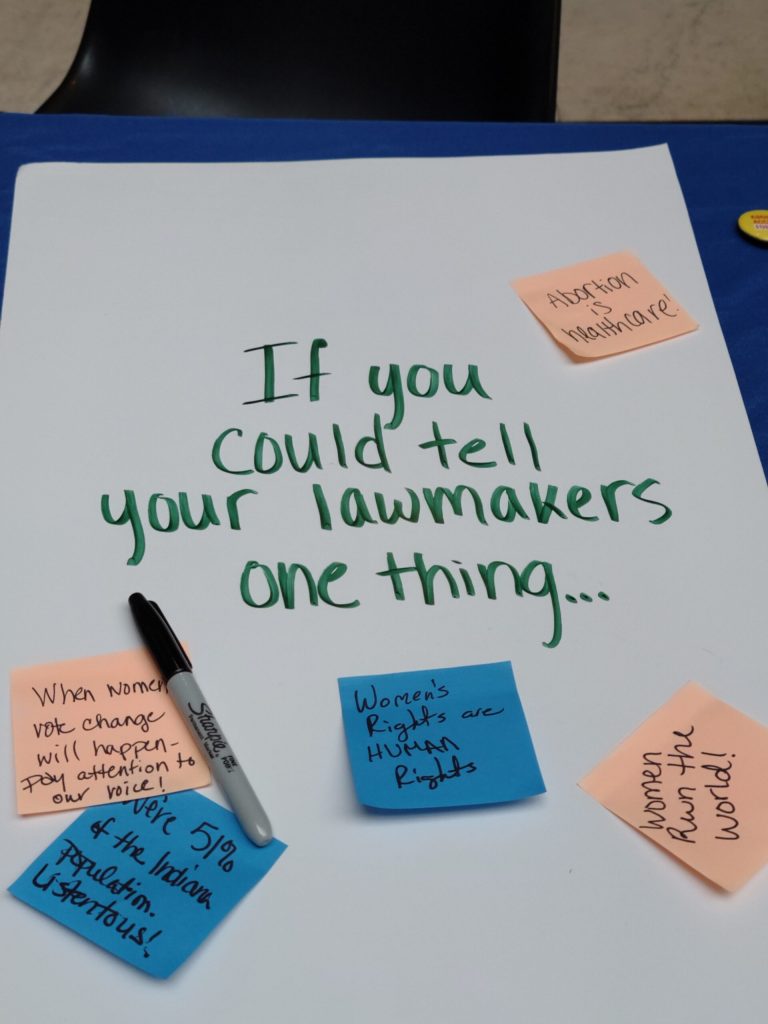 Abortion
is
healthcare!
If you
could tell
your lawmakers
one thing...
When women
vote change
will happen-
pay attention to
our voice!
Sharpie
Women's
Rights are
HUMAN
Rights
Women
Run the
World!
We're 51%
of the Indiana
population.
Listen to us!